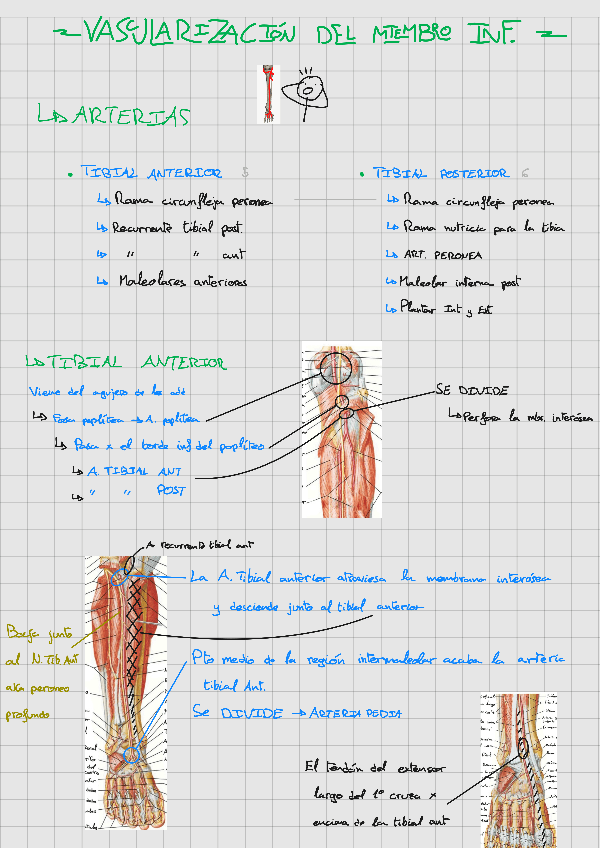 VASCULARIZACIÓN DEL MIEMBRO INF.
↳ ARTERIAS
• TIBIAL ANTERIOR 5
↳ Rama circunfleja peronea
↳ Recurrente tibial post.
↳ " " ant
↳ Maleolares anteriores
• TIBIAL POSTERIOR 6
↳ Rama circunfleja peronea
↳ Rama nutricia para la tibia
↳ ART. PERONEA
↳ Maleolar interna post
↳ Plantar Int y Ext
↳ TIBIAL ANTERIOR
Viene del agujero de los add
↳ Fosa poplítea → A. poplítea
↳ Pasa x el borde inf del poplíteo
↳ A. TIBIAL ANT
↳ " " POST
SE DIVIDE
↳ Perfora la mbr. interósea
A recurrente tibial ant
La A. Tibial anterior atraviesa la membrana interósea
y desciende junto al tibial anterior
Baja junto
al N. Tib Ant
aka peroneo
profundo
Pto medio de la región intermaleolar acaba la arteria
tibial Ant.
Se DIVIDE → ARTERIA PEDIA
El tendón del extensor
largo del 1º cruza x
encima de la tibial ant